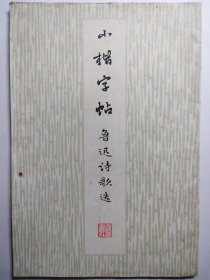 小楷字帖
鲁迅诗歌选